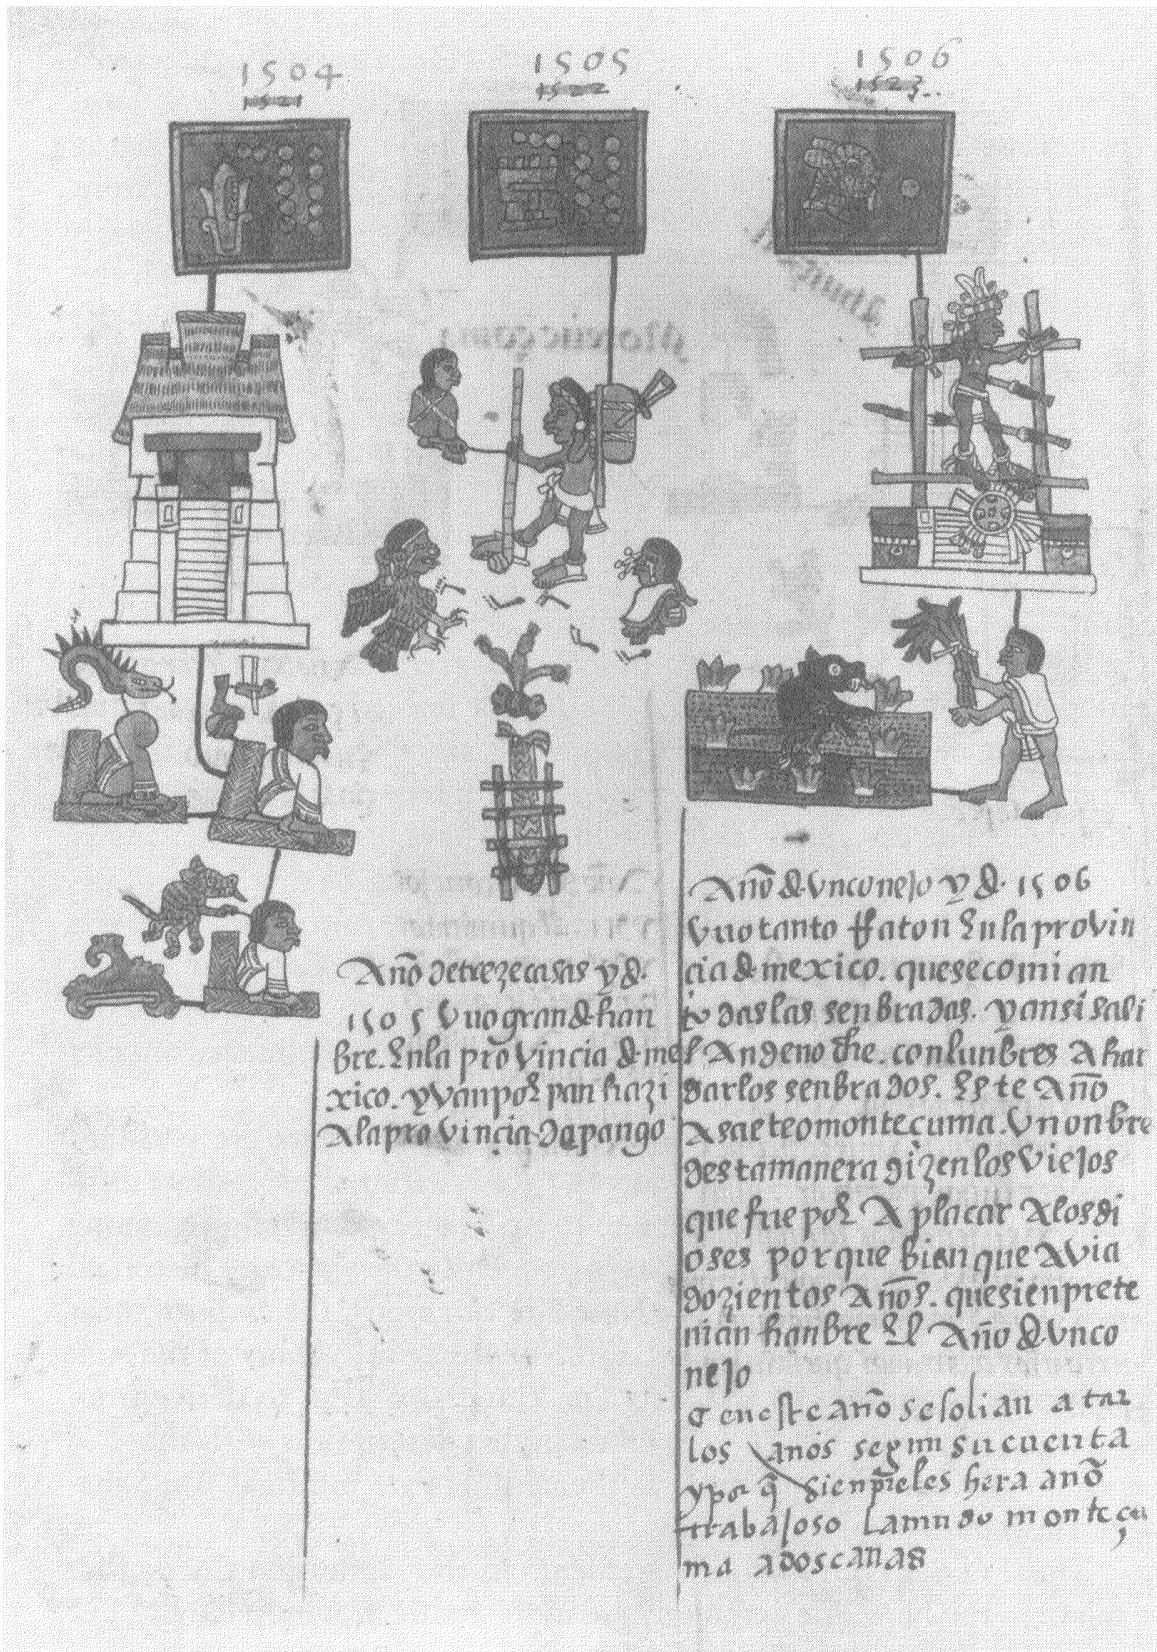 1504
1521
1505
1522
1506
1523
Año de trezecasas y d.
1505 Vuo gran d han
bre. En la provincia d me
xico. y van por pan hazi
A la provincia da pango
Año d. un conejo y d. 1506
Vuo tanto Raton En la provin
cia d mexico. que se comian
todas las senbradas. y ansi sali
An de noche. con lunbres A har
darlos senbrados. Este Año
Asaeteo montecuma. Un onbre
desta manera dizen los Viejos
que fue por Aplacar A los di
oses porque bian que Avia
dozientos Años. que sienpre te
nian hanbre El Año d. un co
nejo
en este año se solian atar
los años segun su cuenta
y por q̃ sienpreles hera año
trabajoso la mudo monteçu
ma a dos canas